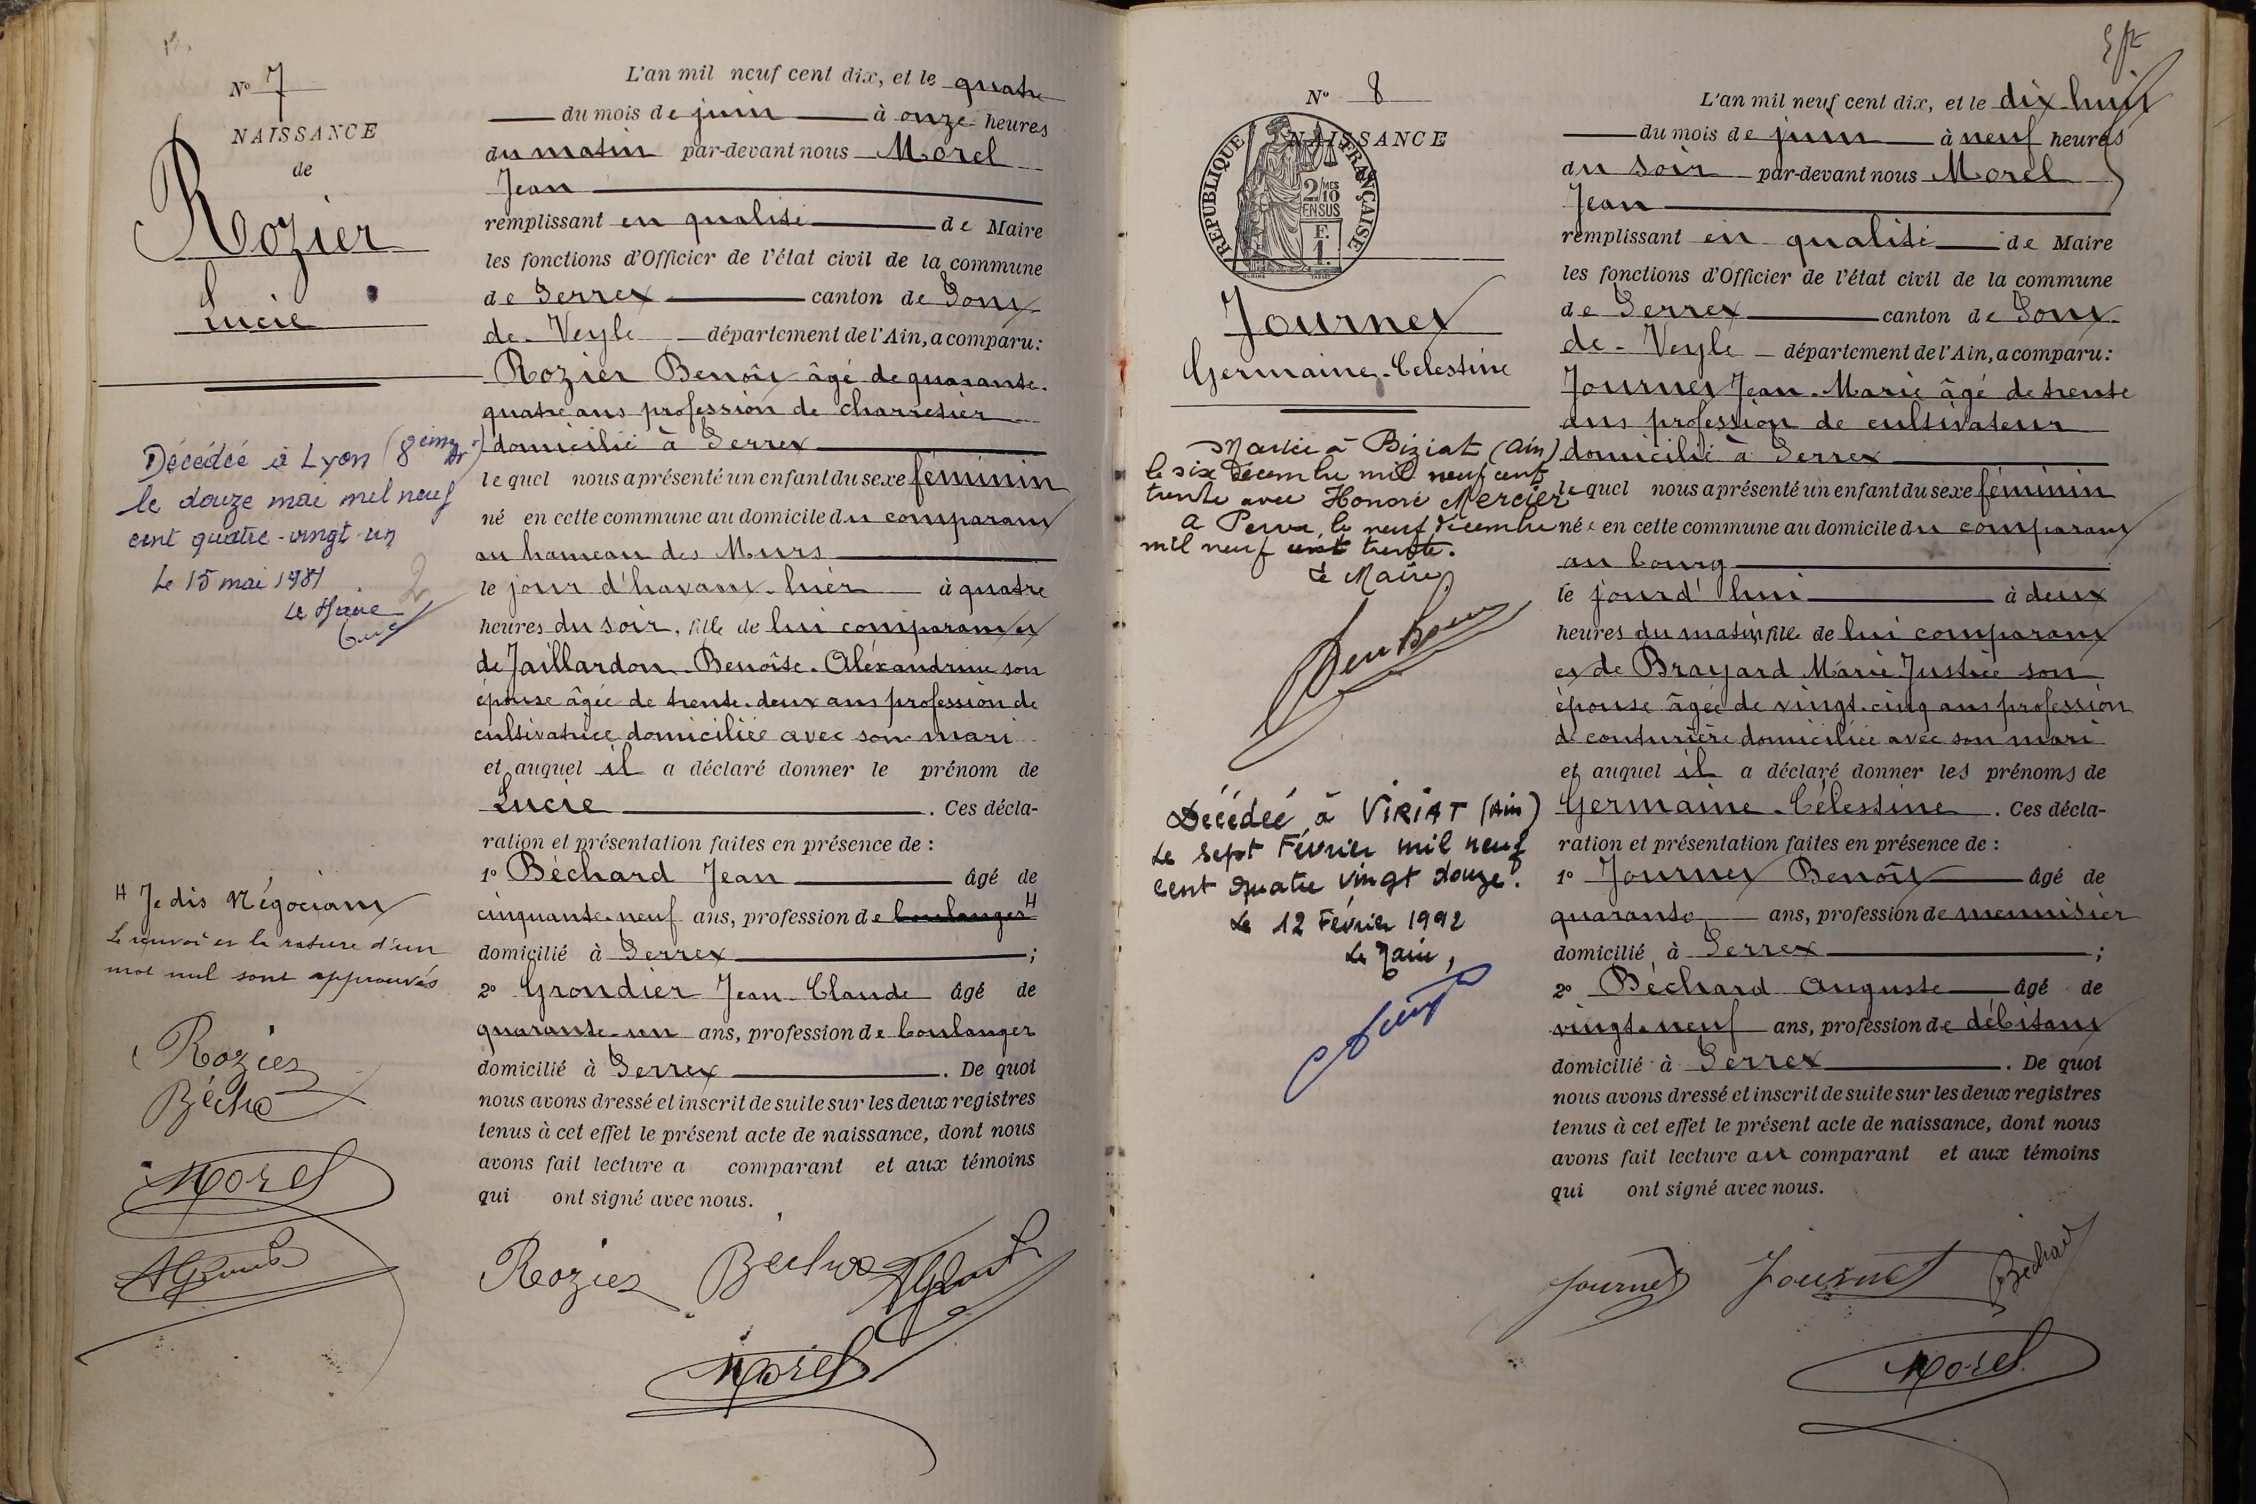 Nº 7
NAISSANCE
de
Rozier
Lucie
Décédée à Lyon (8ème Ar)
le douze mai mil neuf
cent quatre-vingt-un
Le 15 mai 1981
Le Maire
2
H Je dis Négociant
Le renvoi et la rature d'un
mot nul sont approuvés
Rozier
Morel
L'an mil neuf cent dix, et le quatre
du mois de juin à onze heures
du matin par-devant nous Morel
Jean
remplissant en qualité de Maire
les fonctions d'Officier de l'état civil de la commune
de Perrex canton de Pont
de Veyle département de l'Ain, a comparu:
Rozier Benoît âgé de quarante-
quatre ans profession de charretier
domicilié à Perrex
lequel nous a présenté un enfant du sexe féminin
né en cette commune au domicile du comparant
au hameau des Murs
le jour d'havant-hier à quatre
heures du soir, fille de lui comparant et
de Jaillardon Benoîte Aléxandrine son
épouse âgée de trente-deux ans profession de
cultivatrice domiciliée avec son mari
et auquel il a déclaré donner le prénom de
Lucie. Ces décla-
ration et présentation faites en présence de :
1º Béchard Jean âgé de
cinquante-neuf ans, profession de boulanger H
domicilié à Perrex ;
2º Grondier Jean-Claude âgé de
quarante-un ans, profession de boulanger
domicilié à Perrex. De quoi
nous avons dressé et inscrit de suite sur les deux registres
tenus à cet effet le présent acte de naissance, dont nous
avons fait lecture a comparant et aux témoins
qui ont signé avec nous.
Rozier
Morel
Nº 8
NAISSANCE
RÉPUBLIQUE FRANÇAISE
2/10 MES
EN SUS
F.
1.
Journet
Germaine-Celestine
Mariée à Biziat (Ain)
le six décembre mil neuf cent
trente avec Honoré Mercier
A Perrex, le neuf décembre
mil neuf cent trente.
Le Maire
Décédée à VIRIAT (Ain)
Le sept Février mil neuf
cent quatre vingt douze.
Le 12 Février 1992
Le Maire,
L'an mil neuf cent dix, et le dix huit
du mois de juin à neuf heures
du soir par-devant nous Morel
Jean
remplissant en qualité de Maire
les fonctions d'Officier de l'état civil de la commune
de Perrex canton de Pont
de-Veyle département de l'Ain, a comparu:
Journet Jean-Marie âgé de trente
ans profession de cultivateur
domicilié à Perrex
lequel nous a présenté un enfant du sexe féminin
né en cette commune au domicile du comparant
au bourg
le jourd'hui à deux
heures du matin, fille de lui comparant
et de Brayard Marie Justice son
épouse âgée de vingt-cinq ans profession
de couturière domiciliée avec son mari
et auquel il a déclaré donner les prénoms de
Germaine-Célestine. Ces décla-
ration et présentation faites en présence de :
1º Journet Benoît âgé de
quarante ans, profession de menuisier
domicilié à Perrex ;
2º Béchard Auguste âgé de
vingt-neuf ans, profession de débitant
domicilié à Perrex. De quoi
nous avons dressé et inscrit de suite sur les deux registres
tenus à cet effet le présent acte de naissance, dont nous
avons fait lecture au comparant et aux témoins
qui ont signé avec nous.
Journet Journet Béchard
Morel